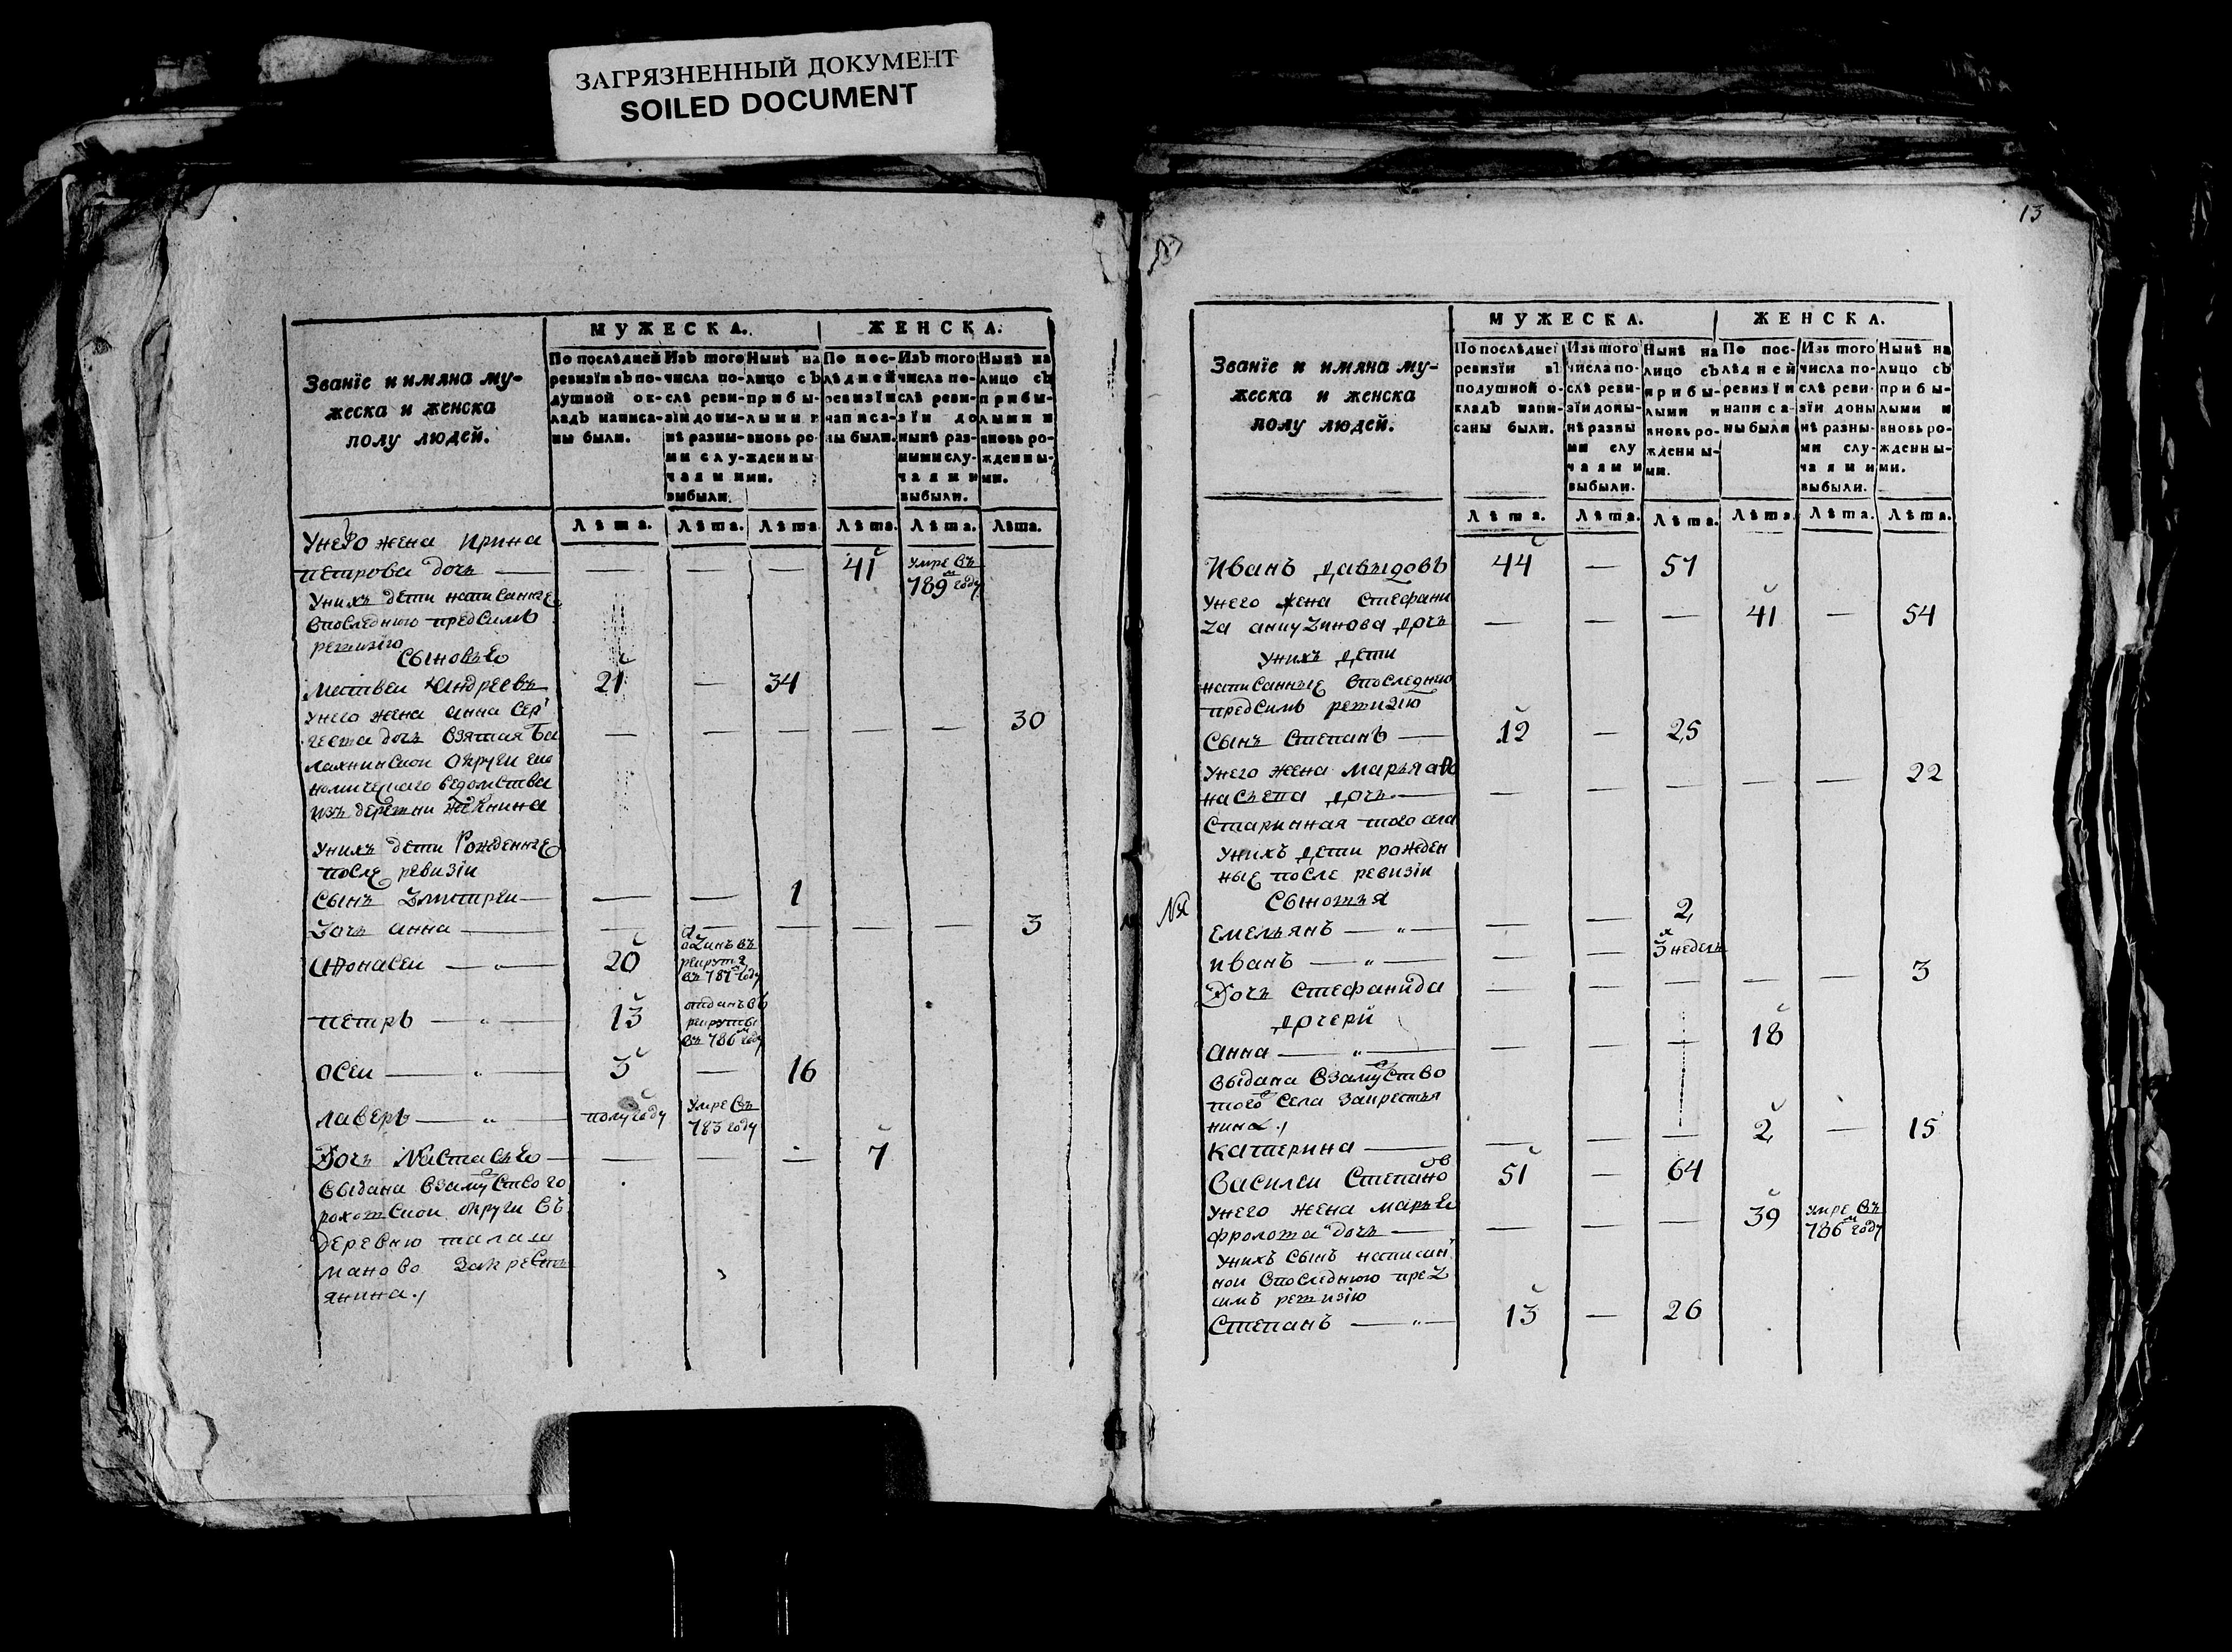 ЗАГРЯЗНЕННЫЙ ДОКУМЕНТ
SOILED DOCUMENT
Званїе и имяна му-
жеска и женска
полу людей.
МУЖЕСКА.
ЖЕНСКА.
По послѣдней
ревизїи въ по-
душной ок-
ладъ написа-
ны были.
Изъ того
числа по-
слѣ реви-
зїи до ны-
нѣ разны-
ми слу-
чаями
выбыли.
Нынѣ на
лицо съ
прибы-
лыми и
вновь ро-
жденны-
ми.
По пос-
лѣдней
ревизїи
написа-
ны были.
Изъ того
числа по-
слѣ реви-
зїи до
нынѣ раз-
ными слу-
чаями
выбыли.
Нынѣ на
лицо съ
прибы-
лыми и
вновь ро-
жденны-
ми.
Лѣта. Лѣта. Лѣта. Лѣта. Лѣта. Лѣта.
Унего жена Ирина
петрова дочь — — — — 41 умре въ
789м году
Унихъ дети написанные
впоследнюю предсимъ
ревизїю
сыновье
Матвеи Андреевъ 21 — 34
Унего жена анна сер
геева дочь взятая ба — — — — — 30
лахнинскои округи еко
номическаго ведомства
изъ деревни
Унихъ дети рожденные
после ревизїи
Сынъ Дмитреи — — — 1
Дочь анна — — — — — — 3
Афонасеи — „ — 20 отданъ въ
рекруты
въ 787 году
петръ — „ — 13 отданъ въ
рекруты
въ 786м году
осеи — „ — 3 — 16
лаверъ — „ — полугоду умре въ
783 году
Дочь Настасье — — — — 7
выдана взамуство го
роховскои округи въ
деревню талаш
маново закресть
янина.
13
Званїе и имяна му-
жеска и женска
полу людей.
МУЖЕСКА.
ЖЕНСКА.
По послѣдней
ревизїи въ
подушной о-
кладъ напи-
саны были.
Изъ того
числа по-
слѣ реви-
зїи до ны-
нѣ разны
ми слу
чаями
выбыли.
Нынѣ на
лицо съ
прибы-
лыми и
вновь ро-
жденны-
ми.
По пос-
лѣдней
ревизїи
написа-
ны были
Изъ того
числа по-
слѣ реви-
зїи до ны
нѣ разны-
ми слу-
чаями
выбыли.
Нынѣ на
лицо съ
прибы-
лыми и
вновь ро-
жденны-
ми.
Лѣта. Лѣта. Лѣта. Лѣта. Лѣта. Лѣта.
Иванъ давыдовъ 44 — 57
Унего жена стефани
да дочь — — — 41 — 54
Унихъ дети
написанные впоследнюю
предсимъ ревизїю
Сынъ степанъ — 12 — 25
Унего жена марья афо
насьева дочь — — — — — — 22
старинная того села
Унихъ дети рожден
ные после ревизїи
сыновья
емельянъ — „ — — — 2
иванъ — „ — — — 3 недель
Дочь стефанида — — — — — 3
дочери
анна — „ — — — — 18
выдана взамуство
того села закрестья
нина.
катерина — — — — 2 — 15
Василеи степановъ 51 — 64
Унего жена марье
фролова дочь — — — — 39 умре въ
786м году
Унихъ сынъ написан
нои впоследнюю пред
симъ ревизїю
Степанъ — „ — 13 — 26